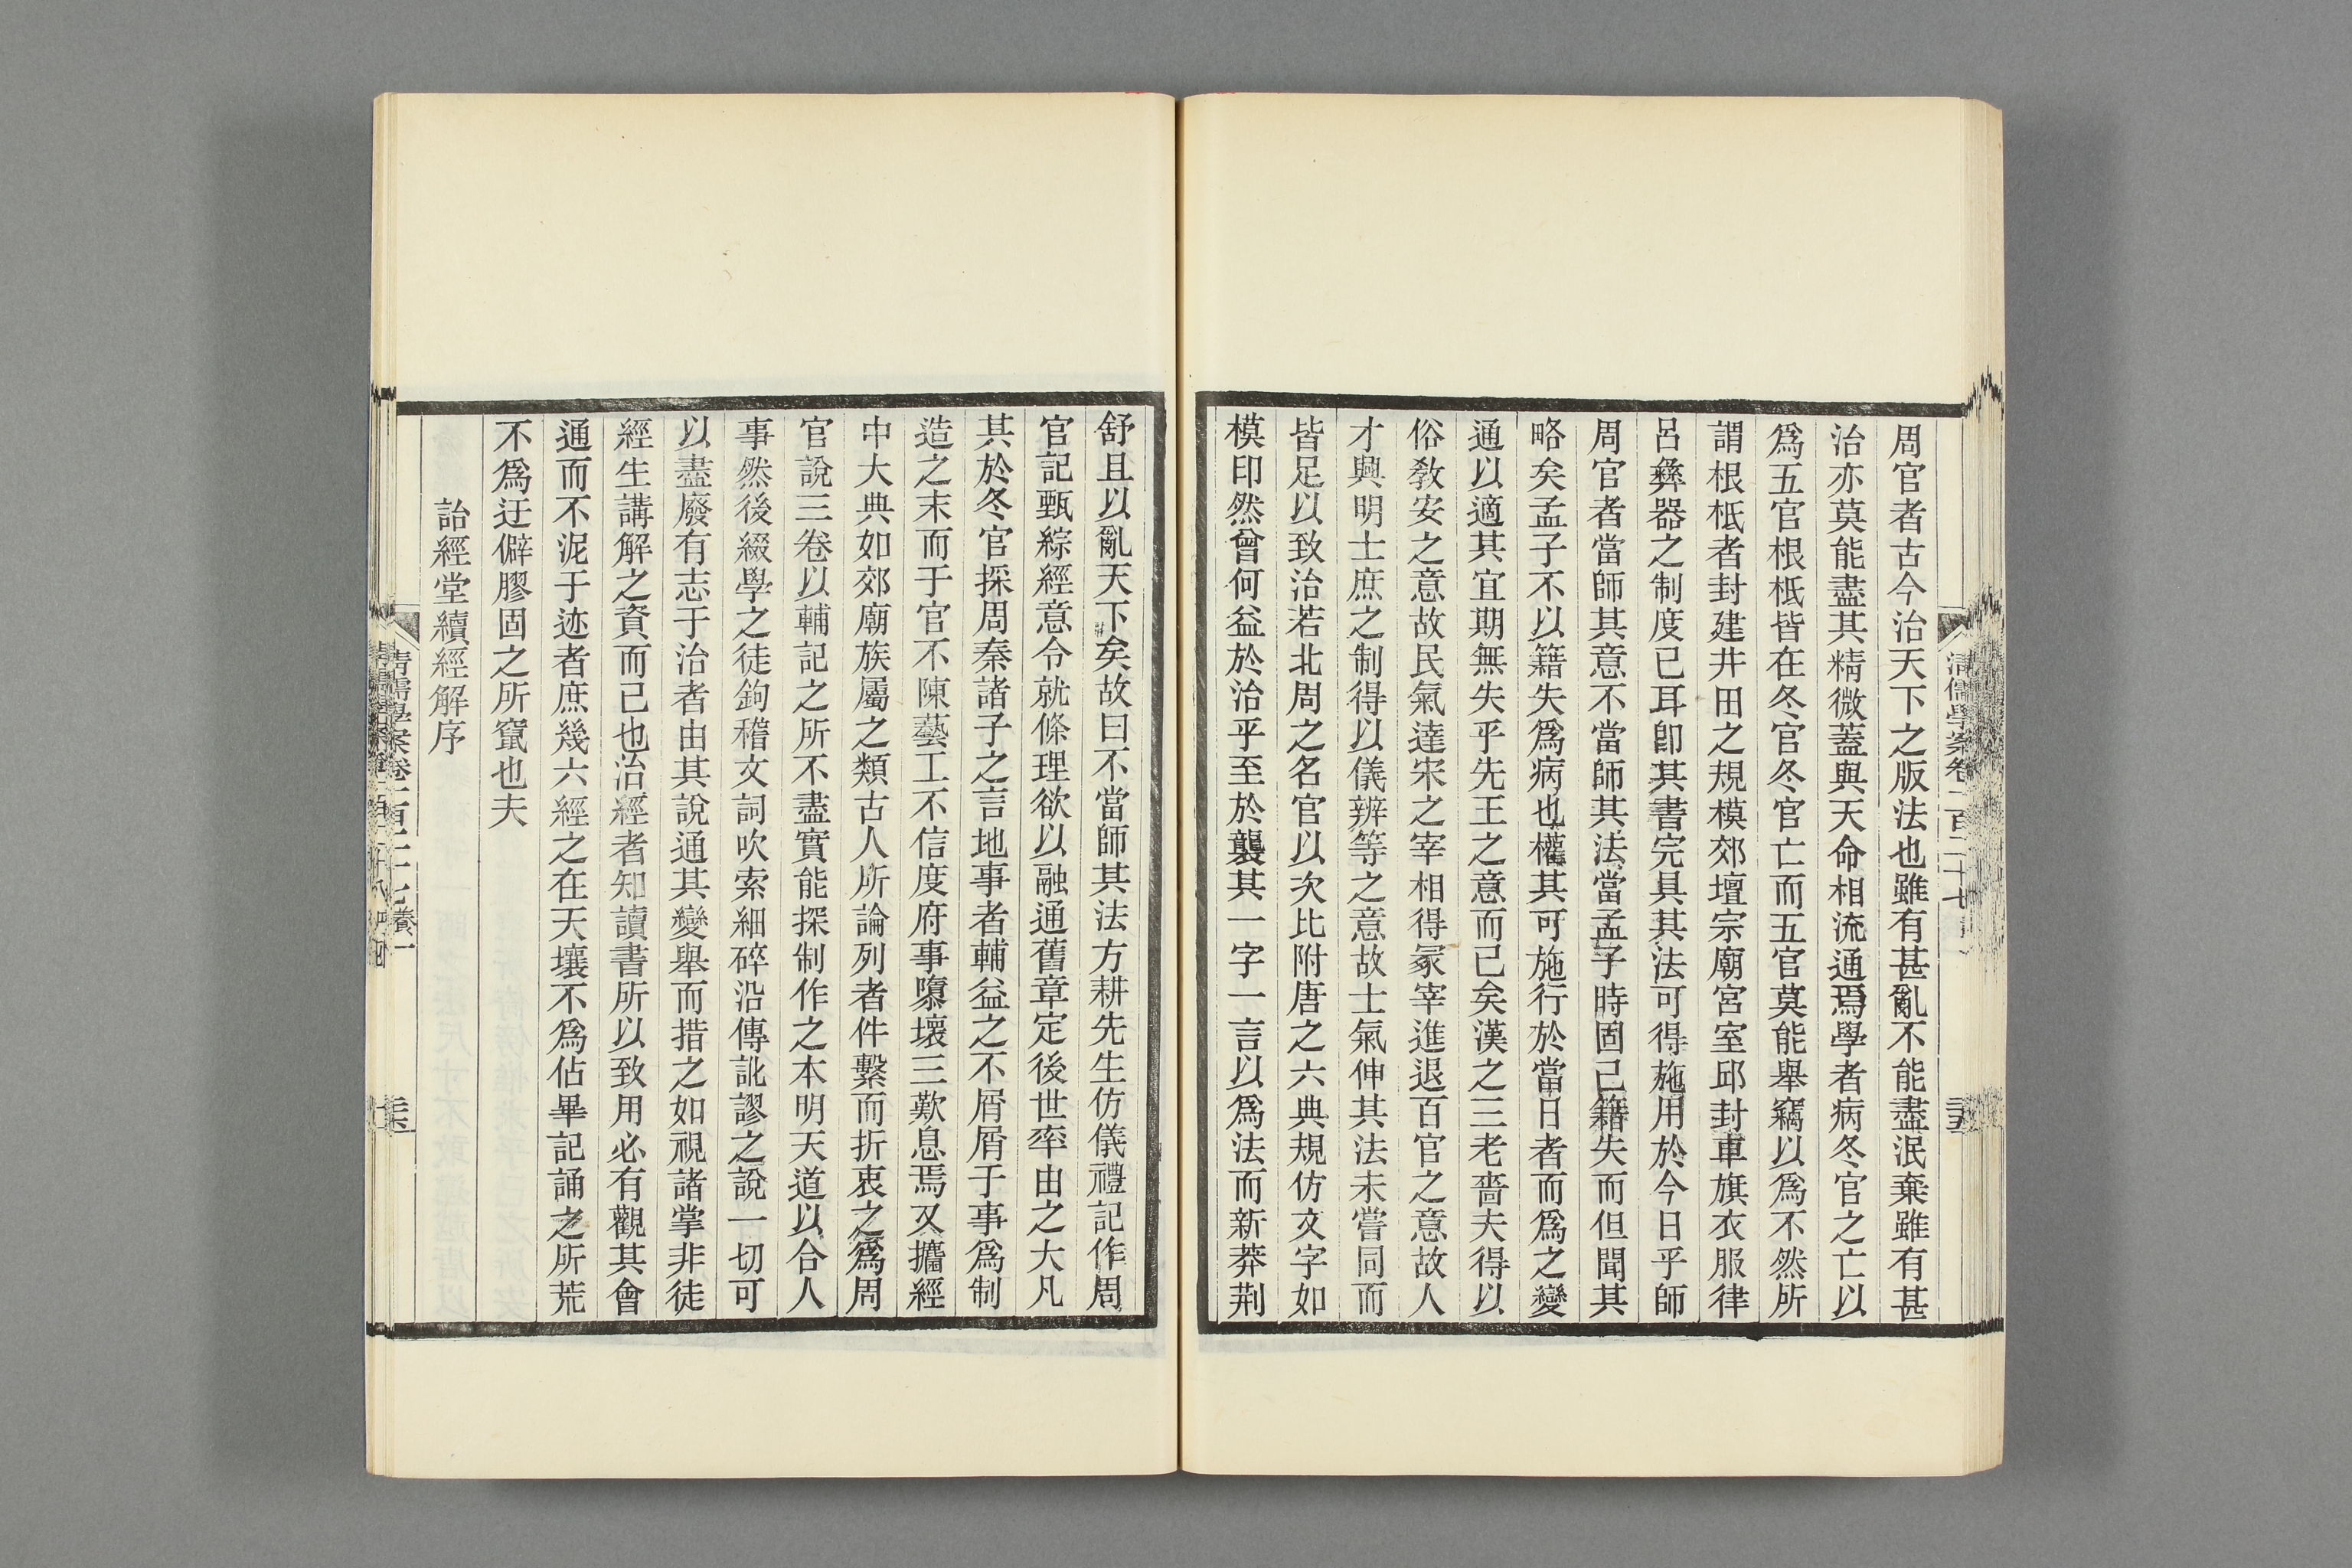 周官者古今治天下之版法也雖有甚亂不能盡泯棄雖有甚
治亦莫能盡其精微蓋與天命相流通焉學者病冬官之亡以
爲五官根柢皆在冬官冬官亡而五官莫能舉竊以爲不然所
謂根柢者封建井田之規模郊壇宗廟宮室邱封車旗衣服律
呂彝器之制度已耳卽其書完具其法可得施用於今日乎師
周官者當師其意不當師其法當孟子時固已籍失而但聞其
略矣孟子不以籍失爲病也權其可施行於當日者而爲之變
通以適其宜期無失乎先王之意而已矣漢之三老嗇夫得以
俗敎安之意故民氣達宋之宰相得冢宰進退百官之意故人
才興明士庶之制得以儀辨等之意故士氣伸其法未嘗同而
皆足以致治若北周之名官以次比附唐之六典規仿文字如
模印然曾何益於治乎至於襲其一字一言以爲法而新莽荆
舒且以亂天下矣故曰不當師其法方耕先生仿儀禮記作周
官記甄綜經意令就條理欲以融通舊章定後世率由之大凡
其於冬官採周秦諸子之言地事者輔益之不屑屑于事爲制
造之末而于官不陳藝工不信度府事隳壞三歎息焉又攟經
中大典如郊廟族屬之類古人所論列者件繫而折衷之爲周
官說三卷以輔記之所不盡實能探制作之本明天道以合人
事然後綴學之徒鉤稽文詞吹索細碎沿傳訛謬之說一切可
以盡廢有志于治者由其說通其變舉而措之如視諸掌非徒
經生講解之資而已也治經者知讀書所以致用必有觀其會
通而不泥于迹者庶幾六經之在天壤不爲佔畢記誦之所荒
不爲迂僻膠固之所竄也夫
詒經堂續經解序